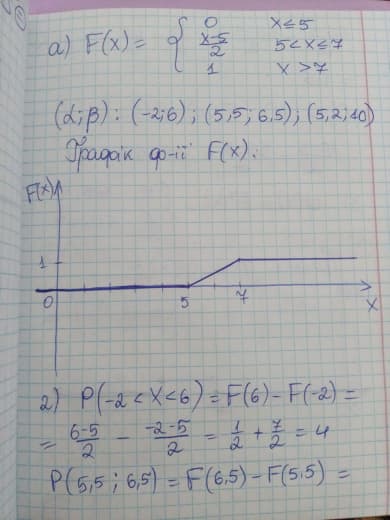 а) F(x) = { 0 x ≤ 5
x-5/2 5 < x ≤ 7
1 x > 7
(α;β): (-2;6); (5,5; 6,5); (5,2;10)
Графік ф-ії F(x):
F(x)
1
0 5 7 x
2) P(-2 < X < 6) = F(6) - F(-2) =
= 6-5/2 - -2-5/2 = 1/2 + 7/2 = 4
P(5,5 ; 6,5) = F(6,5) - F(5,5) =